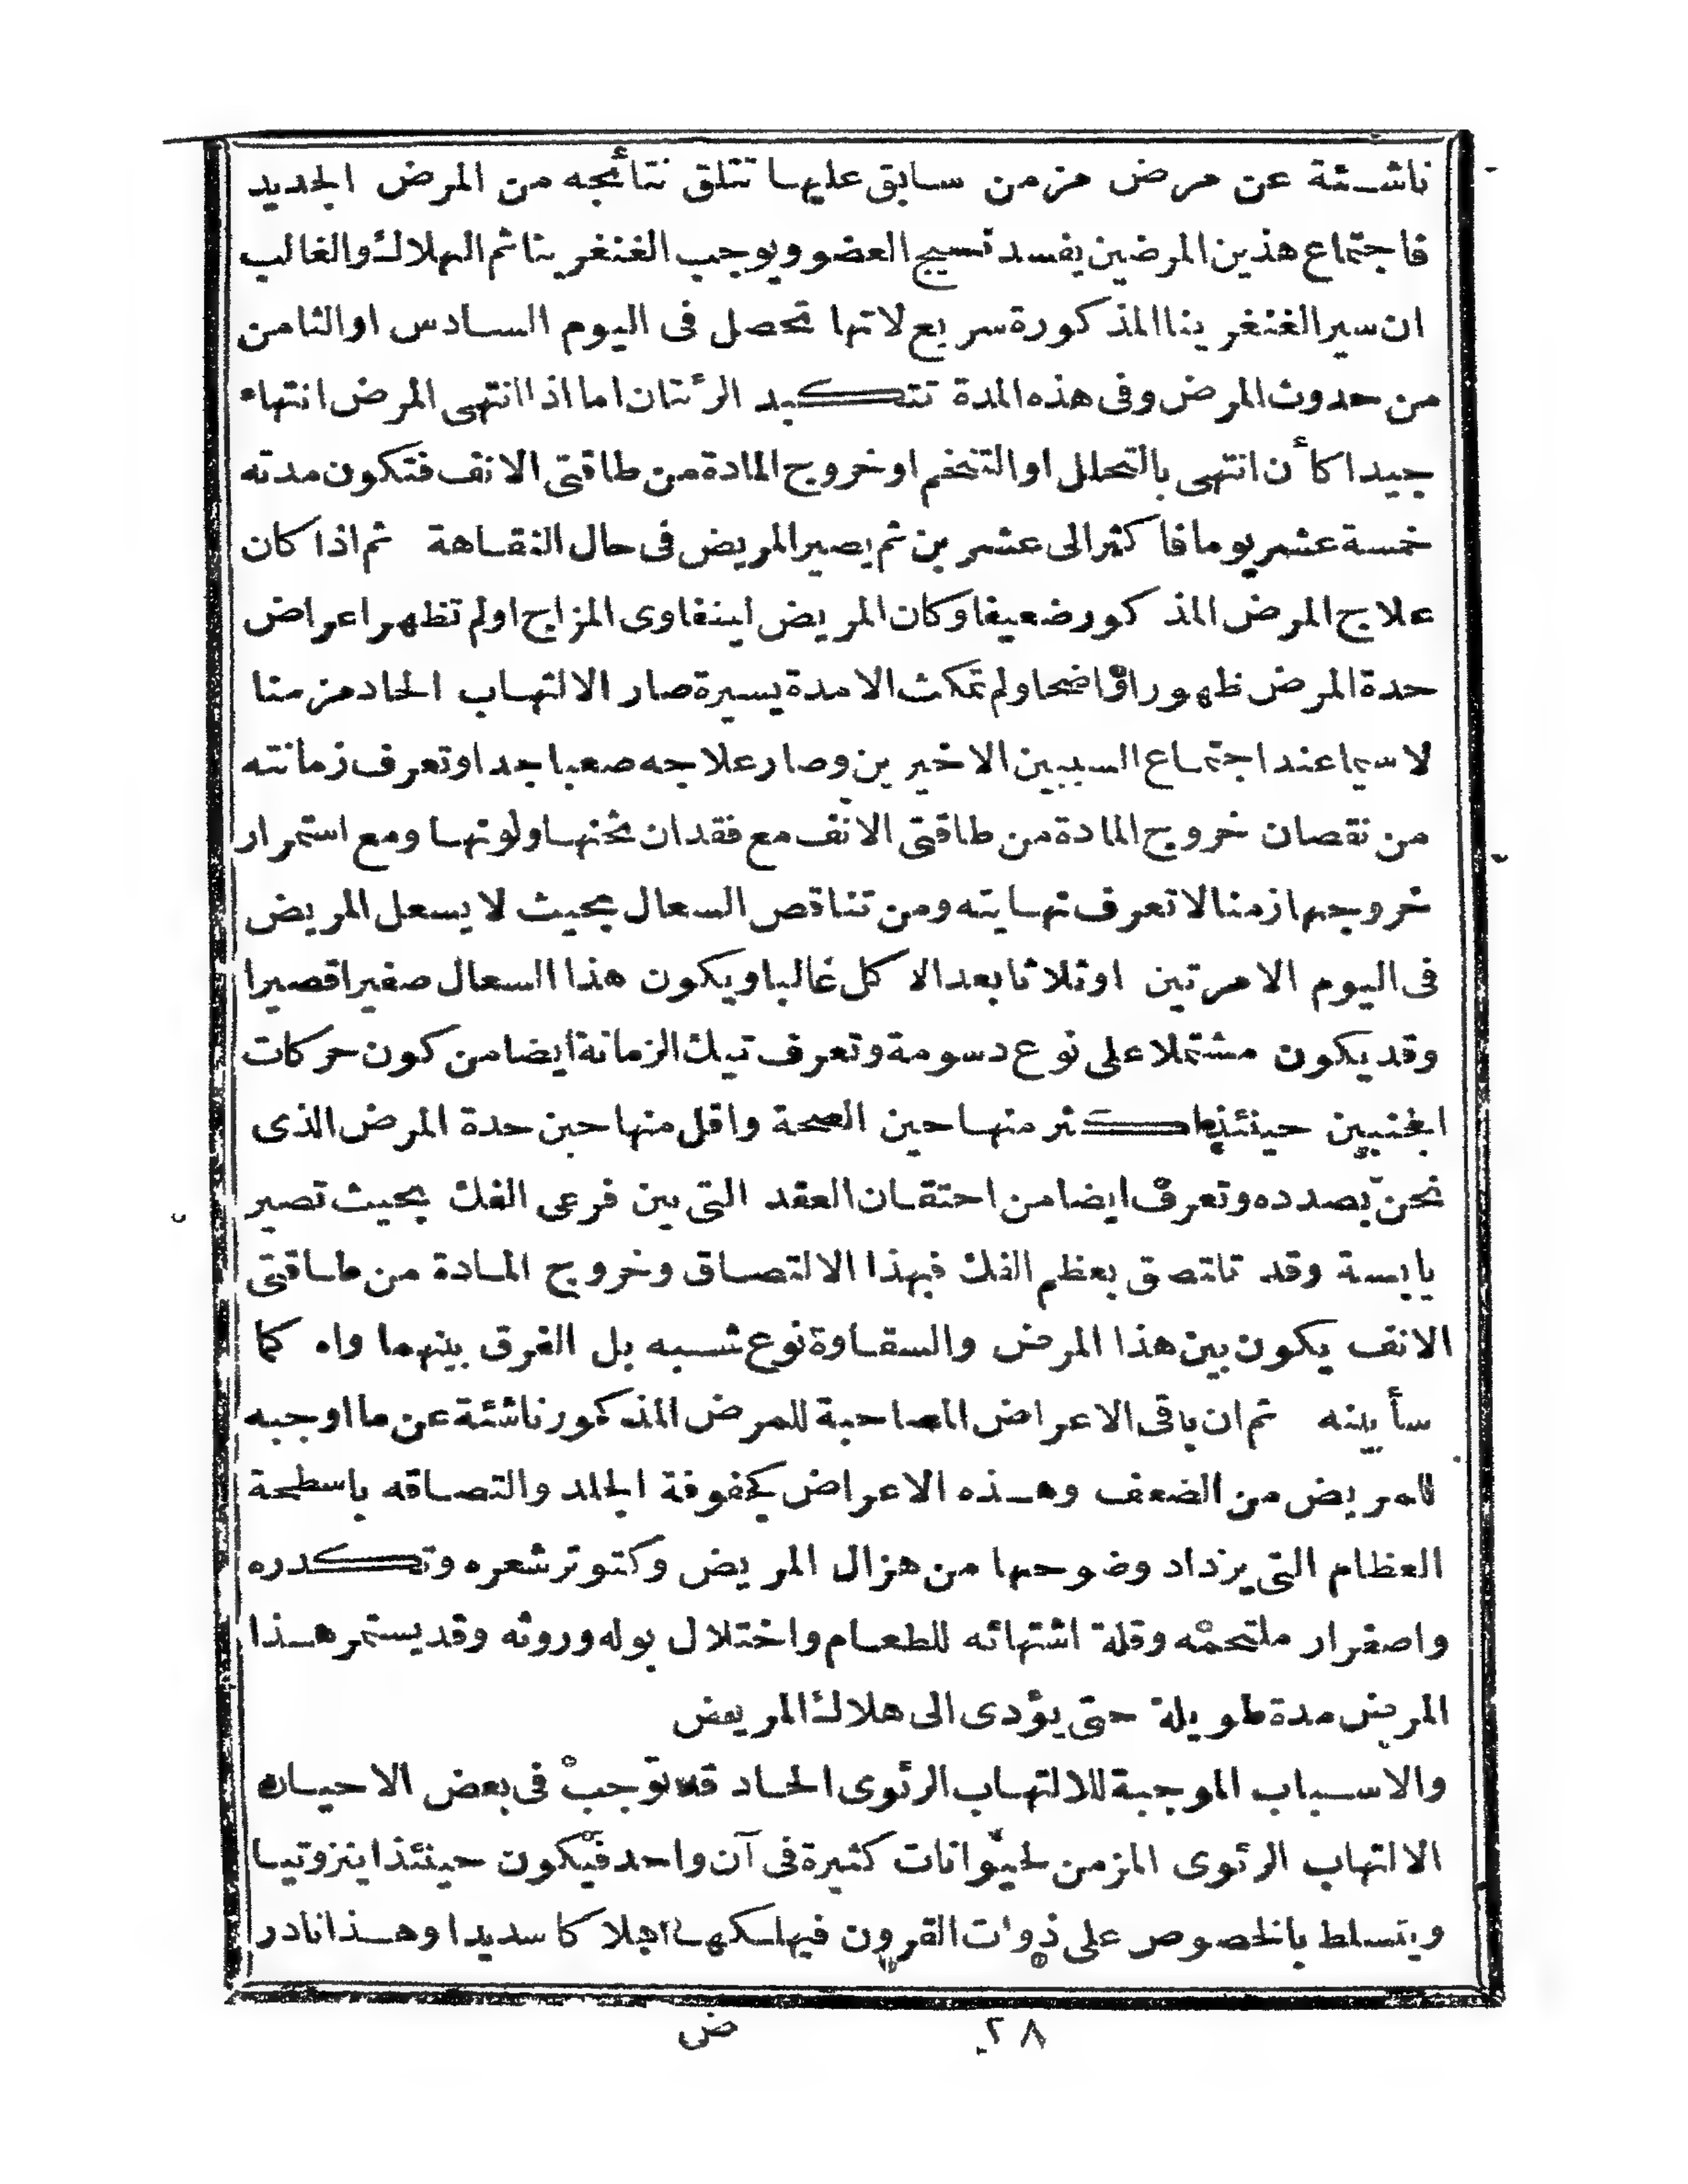 ناشئة عن مرض مزمن سابق عليها تتلق نتائجه من المرض الجديد
فاجتماع هذين المرضين يفسد نسيج العضو ويوجب الغنغرينا ثم الهلاك والغالب
ان سير الغنغرينا المذكورة سريع لانها تحصل فى اليوم السادس او الثامن
من حدوث المرض وفى هذه المدة تتكبد الرئتان اما اذا انتهى المرض انتهاء
جيدا كأن انتهى بالتحلل او التنخم او خروج المادة من طاقتى الانف فتكون مدته
خمسة عشر يوما فاكثر الى عشرين ثم يصير المريض فى حال النقاهة ثم اذا كان
علاج المرض المذكور ضعيفا وكان المريض لينفاوى المزاج او لم تظهر اعراض
حدة المرض ظهورا واضحا ولم تمكث الا مدة يسيرة صار الالتهاب الحاد مزمنا
لاسيما عند اجتماع السببين الاخيرين وصار علاجه صعبا جدا وتعرف زمانته
من نقصان خروج المادة من طاقتى الانف مع فقدان ثخنها ولونها ومع استمرار
خروجها زمنا لا تعرف نهايته ومن تناقص السعال بحيث لا يسعل المريض
فى اليوم الا مرتين او ثلاثا بعد الاكل غالبا ويكون هذا السعال صغيرا قصيرا
وقد يكون مشتملا على نوع دسومة وتعرف تيك الزمانة ايضا من كون حركات
الجنبين حينئذ اكثر منها حين الصحة واقل منها حين حدة المرض الذى
نحن بصدده وتعرف ايضا من احتقان العقد التى بين فرعى الفك بحيث تصير
يابسة وقد تلتصق بعظم الفك فبهذا الالتصاق وخروج المادة من طاقتى
الانف يكون بين هذا المرض والسقاوة نوع شبه بل الفرق بينهما واه كما
سأبينه ثم ان باقى الاعراض المصاحبة للمرض المذكور ناشئة عن ما اوجبه
للمريض من الضعف وهذه الاعراض كخفوفة الجلد والتصاقه باسطحة
العظام التى يزداد وضوحها من هزال المريض وكتوتر شعره وتكدره
واصفرار ملتحمه وقلة اشتهائه للطعام واختلال بوله وروثه وقد يستمر هذا
المرض مدة طويلة حتى يؤدى الى هلاك المريض
والاسباب الموجبة للالتهاب الرئوى الحاد قد توجب فى بعض الاحيان
الالتهاب الرئوى المزمن لحيوانات كثيرة فى آن واحد فيكون حينئذ اينزوتيا
ويتسلط بالخصوص على ذوات القرون فيهلكها اهلاكا سديدا وهذا نادر
٢٨ ض